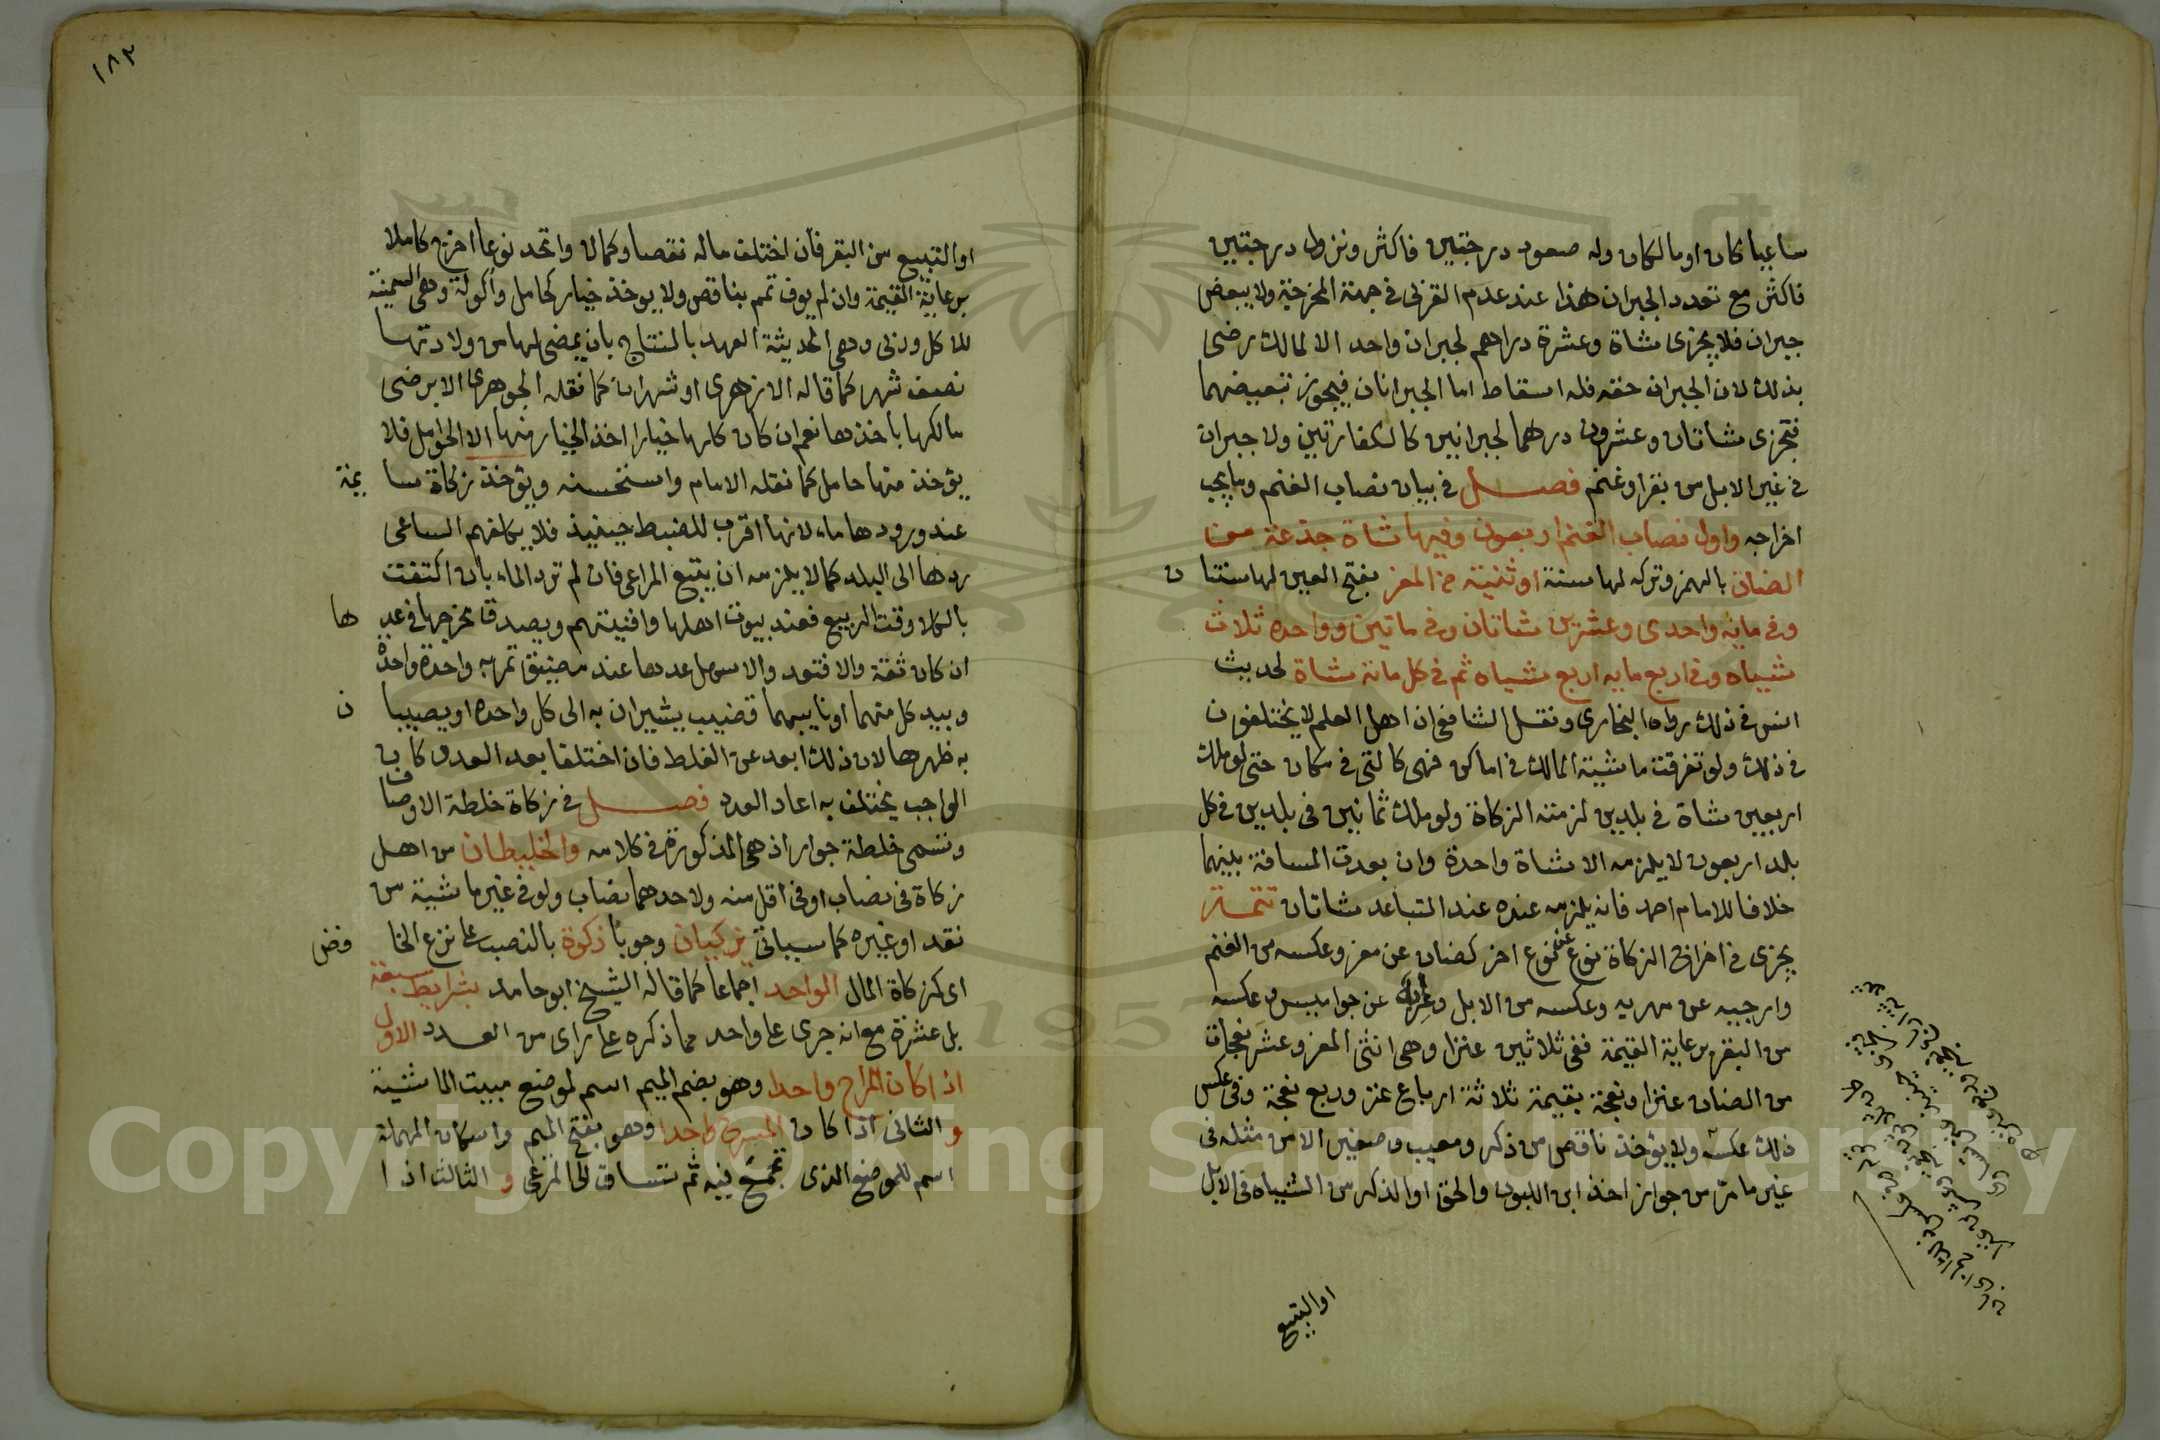 ساعيا كان او مالكا وله صعود درجتين فاكثر ونزول درجتين
فاكثر مع تعدد الجبران هذا عند عدم القربى في جهة المخرجة ولا يبعض
جبران فلا يجزى شاة وعشرة دراهم لجبران واحد الا لمالك رضى
بذلك لان الجبران حقه فله اسقاط اما الجبرانان فيجوز تبعيضهما
فتجزى شاتان وعشرون درهما لجبرانين كالكفارتين ولا جبران
في غير الابل من بقر او غنم فصل في بيان نصاب الغنم وما يجب
اخراجه واول نصاب الغنم اربعون وفيها شاة جذعة من
الضان بالهمز وتركه لها سنة او ثنية من المعز بفتح العين لها سنتا ن
وفي مايه واحدى وعشرين شاتان وفي ماتين وواحده ثلاث
شياه وفي اربع مايه اربع شياه ثم في كل مائة شاة لحديث
انس في ذلك رواه البخارى ونقل الشافعى ان اهل العلم لا يختلفون
في ذلك ولو تفرقت ماشية المالك في اماكن فهى كالتى في مكان حتى لو ملك
اربعين شاة في بلدين لزمته الزكاة ولو ملك ثمانين في بلدين في كل
بلد اربعون لا يلزمه الا شاة واحدة وان بعدت المسافة بينهما
خلافا للامام احمد فانه يلزمه عنده عند التباعد شاتان تتمة
يجزى في اخراج الزكاة نوع عن نوع اخر كضان عن معز وعكسه من الغنم
وارحبيه عن مهريه وعكسه من الابل وعراب عن جواميس وعكسه
من البقر برعاية القيمة ففى ثلاثين عنزا وهى انثى المعز وعشر نعجات
من الضان عنز او نعجة بقيمة ثلاثة ارباع عنز وربع نعجة وفى عكس
ذلك عكسه ولا يؤخذ ناقص من ذكر ومعيب وصغير الا من مثله فى
غير ما مر من جواز اخذ ابن اللبون والحق او الذكر من الشياه فى الابل
او التبيع
١٨٣
او التبيع من البقر فان اختلف ماله نقصا وكمالا واتحد نوعا اخرج كاملا
برعاية القيمة وان لم يوف تمم بناقص ولا يوخذ خيار كحامل واكولة وهى السمينة
للاكل وربى وهى الحديثة العهد بالنتاج بان يمضى لها من ولادتها
نصف شهر كما قاله الازهرى او شهران كما نقله الجوهرى الا برضى
مالكها باخذها نعم ان كان كلها خيارا اخذ الخيار منها الا الحوامل فلا
يؤخذ منها حامل كما نقله الامام واستحسنه ويؤخذ زكاة سا يمة
عند ورودها ماء لانها اقرب للضبط حينيذ فلا يكلفهم الساعى
ردها الى البلد كما لا يلزمه ان يتبع المراعى فان لم ترد الماء بان اكتفت
بالكلا وقت الربيع فعند بيوت اهلها وافنيتهم ويصدق مخرجها في عدد ها
ان كان ثقة والا فتعد والاسهل عدها عند مضيق تمر به واحدة واحدة
وبيد كل منهما او نايبهما قضيب يشيران به الى كل واحده او يصيبا ن
به ظهرها لان ذلك ابعد عن الغلط فان اختلفا بعد العد وكان
الواجب يختلف به اعاد العدد فصل في زكاة خلطة الاوصاف
وتسمى خلطة جوار اذ هى المذكورة في كلامه والخليطان من اهل
زكاة فى نصاب او فى اقل منه ولاحدهما نصاب ولو فى غير ماشية من
نقد او غيره كما سياتى يزكيان وجوبا زكوة بالنصب على نزع الخا فض
اى كزكاة المال الواحد اجماعا كما قاله الشيخ ابو حامد بشرايط سبعة
بل عشرة مع انه جرى على واحد مما ذكره على راى من العدد الاول
اذا كان المراح واحدا وهو بضم الميم اسم لموضع مبيت الماشية
و الثانى اذا كان المسرح واحدا وهو بفتح الميم واسكان المهملة
اسم للموضع الذى تجتمع فيه ثم تساق الى المرعى و الثالث اذا
Copyright © King Saud University
1957